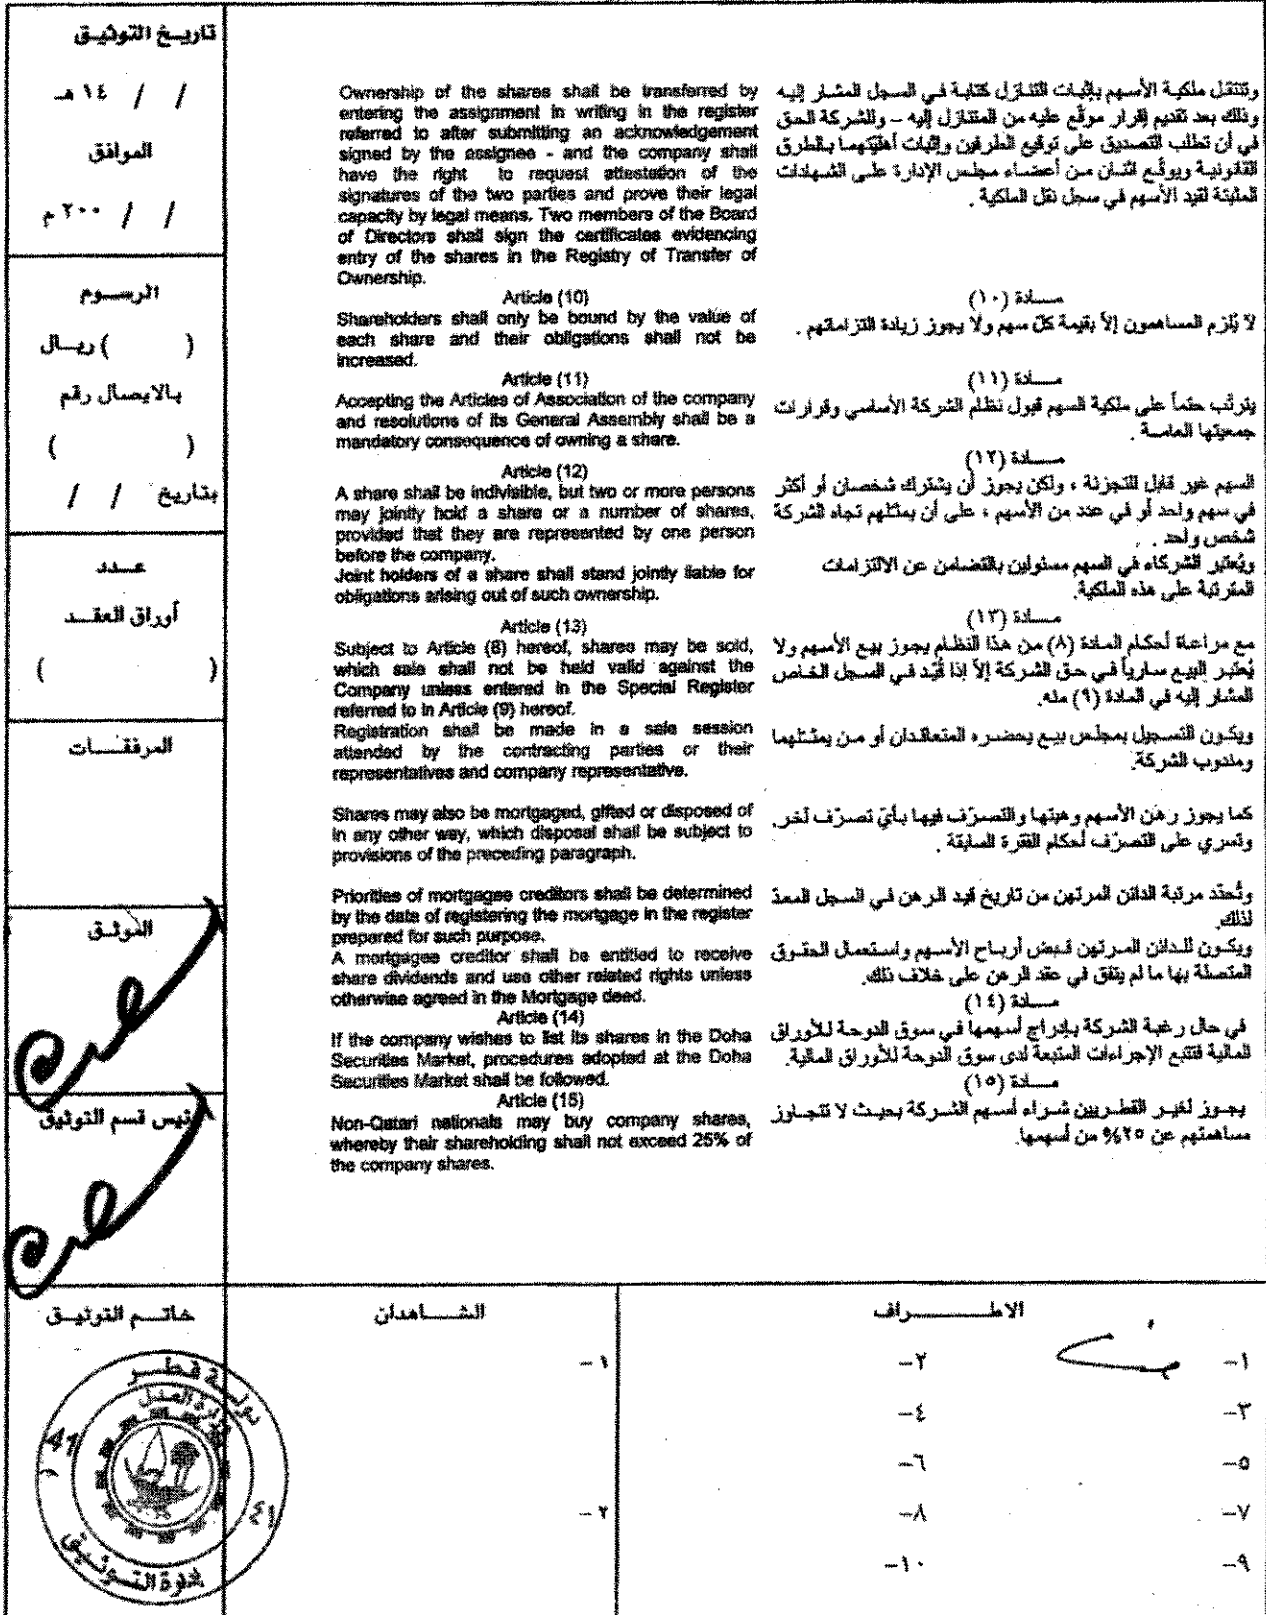 تاريخ التوثيق
/ / ١٤ هـ
الموافق
/ / ٢٠٠ م
الرسوم
( ) ريال
بالايصال رقم
( )
بتاريخ / /
عدد
أوراق العقد
( )
المرفقات
الموثق
رئيس قسم التوثيق
Ownership of the shares shall be transferred by
entering the assignment in writing in the register
referred to after submitting an acknowledgement
signed by the assignee - and the company shall
have the right to request attestation of the
signatures of the two parties and prove their legal
capacity by legal means. Two members of the Board
of Directors shall sign the certificates evidencing
entry of the shares in the Registry of Transfer of
Ownership.
Article (10)
Shareholders shall only be bound by the value of
each share and their obligations shall not be
increased.
Article (11)
Accepting the Articles of Association of the company
and resolutions of its General Assembly shall be a
mandatory consequence of owning a share.
Article (12)
A share shall be indivisible, but two or more persons
may jointly hold a share or a number of shares,
provided that they are represented by one person
before the company.
Joint holders of a share shall stand jointly liable for
obligations arising out of such ownership.
Article (13)
Subject to Article (8) hereof, shares may be sold,
which sale shall not be held valid against the
Company unless entered in the Special Register
referred to in Article (9) hereof.
Registration shall be made in a sale session
attended by the contracting parties or their
representatives and company representative.
Shares may also be mortgaged, gifted or disposed of
in any other way, which disposal shall be subject to
provisions of the preceding paragraph.
Priorities of mortgagee creditors shall be determined
by the date of registering the mortgage in the register
prepared for such purpose.
A mortgagee creditor shall be entitled to receive
share dividends and use other related rights unless
otherwise agreed in the Mortgage deed.
Article (14)
If the company wishes to list its shares in the Doha
Securities Market, procedures adopted at the Doha
Securities Market shall be followed.
Article (15)
Non-Qatari nationals may buy company shares,
whereby their shareholding shall not exceed 25% of
the company shares.
وتنتقل ملكية الأسهم بإثبات التنازل كتابة في السجل المشار إليه
وذلك بعد تقديم إقرار موقع عليه من المتنازل إليه – وللشركة الحق
في أن تطلب التصديق على توقيع الطرفين وإثبات أهليتهما بالطرق
القانونية ويوقع اثنان من أعضاء مجلس الإدارة على الشهادات
المثبتة لقيد الأسهم في سجل نقل الملكية .
مـــادة (١٠)
لا يُلزم المساهمون إلاّ بقيمة كلّ سهم ولا يجوز زيادة التزاماتهم .
مـــادة (١١)
يترتّب حتماً على ملكية السهم قبول نظام الشركة الأساسي وقرارات
جمعيتها العامة .
مـــادة (١٢)
السهم غير قابل للتجزئة ، ولكن يجوز أن يشترك شخصان أو أكثر
في سهم واحد أو في عدد من الأسهم ، على أن يمثلهم تجاه الشركة
شخص واحد .
ويُعتبر الشركاء في السهم مسئولين بالتضامن عن الالتزامات
المترتبة على هذه الملكية.
مـــادة (١٣)
مع مراعاة أحكام المادة (٨) من هذا النظام يجوز بيع الأسهم ولا
يُعتبر البيع سارياً في حق الشركة إلاّ إذا قُيّد في السجل الخاص
المشار إليه في المادة (٩) منه.
ويكون التسجيل بمجلس بيع يحضره المتعاقدان أو من يمثلهما
ومندوب الشركة.
كما يجوز رهن الأسهم وهبتها والتصرّف فيها بأيّ تصرّف آخر.
وتسري على التصرّف أحكام الفقرة السابقة .
وتُحدّد مرتبة الدائن المرتهن من تاريخ قيد الرهن في السجل المعدّ
لذلك.
ويكون للدائن المرتهن قبض أرباح الأسهم واستعمال الحقوق
المتصلة بها ما لم يتفق في عقد الرهن على خلاف ذلك.
مـــادة (١٤)
في حال رغبة الشركة بإدراج أسهمها في سوق الدوحة للأوراق
المالية فتتبع الإجراءات المتبعة لدى سوق الدوحة للأوراق المالية.
مـــادة (١٥)
يجوز لغير القطريين شراء أسهم الشركة بحيث لا تتجاوز
مساهمتهم عن ٢٥% من أسهمها.
خاتم التوثيق
دولة قطر
وزارة العدل
41
٤١
إدارة التوثيق
الشاهدان
١ –
٢ –
الاطراف
١–
٢–
٣–
٤–
٥–
٦–
٧–
٨–
٩–
١٠–